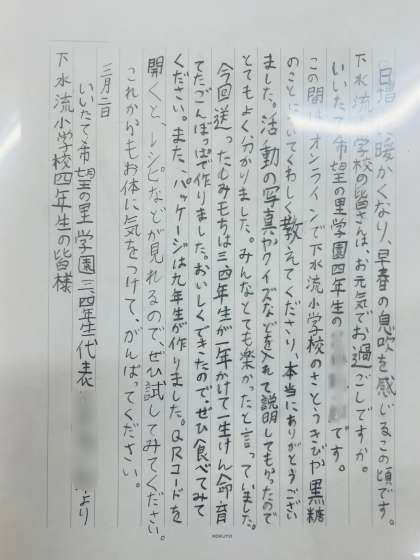 日増しに暖かくなり、早春の息吹を感じるこの頃です。
下水流小学校の皆さんは、お元気でお過ごしですか。
いいたて希望の里学園四年生の です。
この間はオンラインで下水流小学校のさとうきびや黒糖
のことについてくわしく教えてくださり、本当にありがとうござい
ました。活動の写真やクイズなどを入れて説明してもらったので
とてもよく分かりました。みんなとても楽しかったと言っていました。
今回送ったしみもちは三四年生が一年かけて一生けん命育
てたごんぼっぱで作りました。おいしくできたのでぜひ食べてみて
ください。また、パッケージは九年生が作りました。QRコードを
開くと、レシピなどが見れるので、ぜひ試してみてください。
これからもお体に気をつけて、がんばってください。
三月二日
いいたて希望の里学園三四年生代表 より
下水流小学校四年生の皆様
KOKUYO